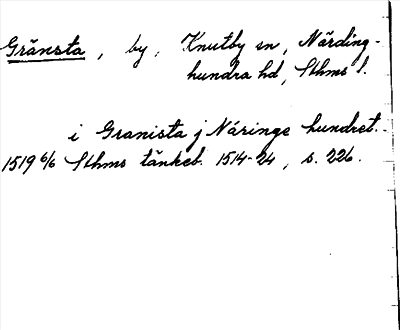 Gränsta, by, Knutby sn, Närding-
hundra hd, Sthms l.
i Granista j Näringe hundret.
1519 6/6 Sthms tänkeb. 1514-24, s. 226.